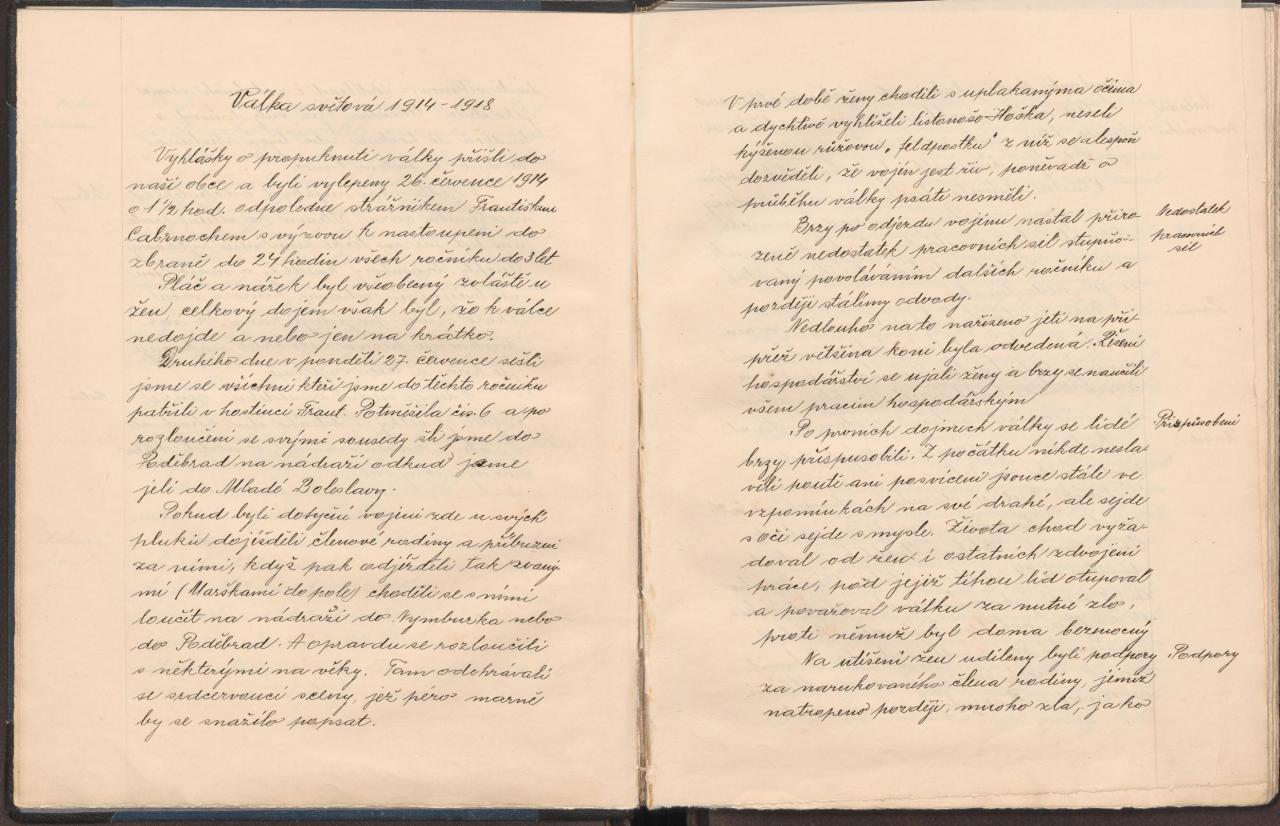 Válka světová 1914 - 1918
Vyhlášky o propuknutí války přišli do
naší obce a byli vylepeny 26. července 1914
o 1 1/2 hod. odpoledne strážníkem Františkem
Cabrnochem s výzvou k nastoupení do
zbraně do 24 hodin všech ročníku do 3 let
Pláč a nářek byl všeobecný zvláště u
žen, celkový dojem však byl, že k válce
nedojde a nebo jen na krátko.
Druhého dne v pondělí 27. července sešli
jsme se všichni kteří jsme do těchto ročníku
patřili v hostinci Frant. Potměšila čís. 6 a po
rozloučení se svými sousedy šli jsme do
Poděbrad na nádraží odkud jsme
jeli do Mladé Boleslavy.
Pokud byli dotyční vojíni zde u svých
pluků dojížděli členové rodiny a příbuzní
za nimi, když pak odjížděli tak zvaný-
mi (Marškami do pole) chodili se s nimi
loučit na nádraží do Nymburka nebo
do Poděbrad. A opravdu se rozloučili
s některými na věky. Tam odehrávali
se srdcervoucí sceny, jež péro marně
by se snažilo popsat.
V prvé době ženy chodili s uplakanýma očima
a dychtivě vyhlíželi listonoše Hoška, neseli
kýženou růžovou „feldpostku" z níž se alespoň
dozvěděli, že vojín jest živ, poněvadž o
průběhu války psáti nesměli.
Brzy po odjezdu vojínu nastal přiro-
zeně nedostatek pracovních sil stupňo-
vaný povoláváním dalších ročníku a
později stálími odvody.
Nedostatek
pracovních
sil
Nedlouho na to nařízeno jeti na pří-
přež většina koní byla odvedená. Řízení
hospodářství se ujali ženy a brzy se naučili
všem pracím hospodářským
Po prvních dojmech války se lidé
Přizpůsobení
brzy přispusobili. Z počátku nikde nesla-
vili pouti ani posvícení jsouce stále ve
vzpomínkách na své drahé, ale sejde
s očí sejde s mysle. Života chod vyža-
doval od žen i ostatních zdvojení
práce, pod jejíž tíhou lid otupoval
a považoval válku za nutné zlo,
proti němuž byl doma bezmocný
Na utišení žen udíleny byli podpory
Podpory
za narukovaného člena rodiny, jímiž
natropeno později, mnoho zla, jako